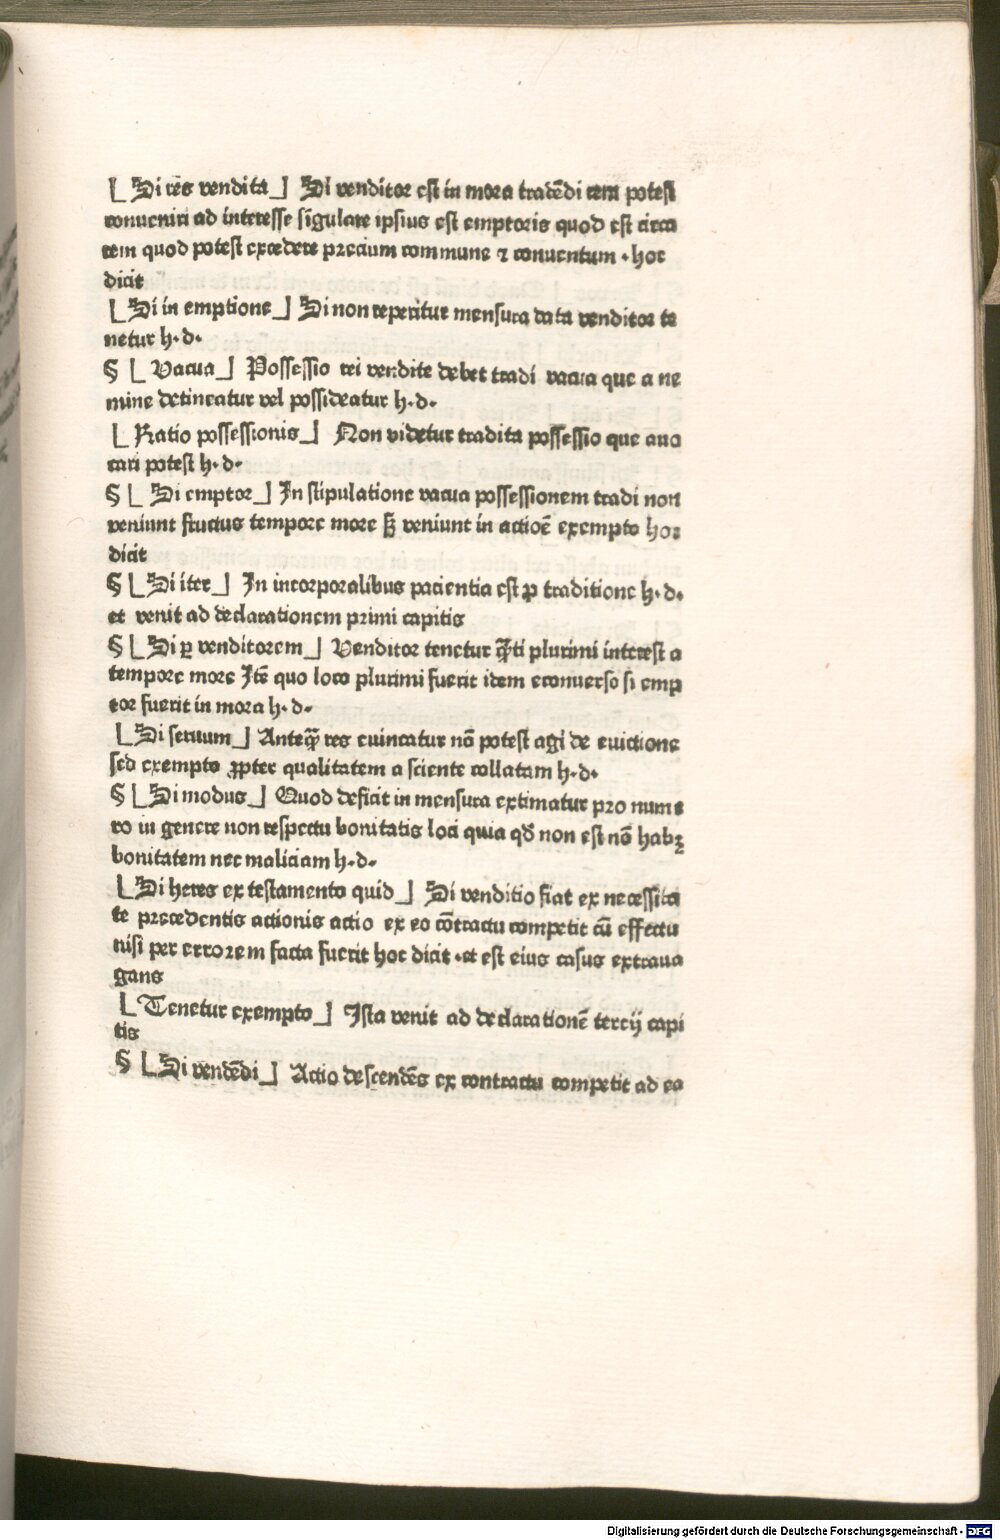 [ Si res vendita ] Si venditor est in mora tradēdi rem potest
conueniri ad interesse sīgulare ipsius est emptoris quod est circa
rem quod potest excedere precium commune ⁊ conuentum · hoc
dicit
[ Si in emptione ] Si non reperitur mensura data venditor te
netur h· d·
§ [ Vacua ] Possessio rei vendite debet tradi vacua que a ne
mine detineatur vel possideatur h· d·
[ Ratio possessionis ] Non videtur tradita possessio que auo
cari potest h· d·
§ [ Si emptor ] In stipulatione vacua possessionem tradi non
veniunt fructus tempore more sꝫ veniunt in actiōe exempto hoc
dicit
§ [ Si iter ] In incorporalibus paciencia est ꝓ traditione h· d·
et venit ad declarationem primi capitis
§ [ Si ꝑ venditorem ] Venditor tenetur q̄ti plurimi interest a
tempore more Itē quo loco plurimi fuerit idem econuerso si emp
tor fuerit in mora h· d·
[ Si seruum ] Anteq̄ res euincatur nō potest agi de euictione
sed exempto ꝓpter qualitatem a sciente collatam h· d·
§ [ Si modus ] Quod deficit in mensura extimatur pro nume
ro in genere non respectu bonitatis loci quia qd̄ non est nō habꝫ
bonitatem nec maliciam h· d·
[ Si heres ex testamento quid ] Si venditio fiat ex necessita
te precedentis actionis actio ex eo cōtractu competit cū effectu
nisi per errorem facta fuerit hoc dicit · et est eius casus extraua
gans
[ Tenetur exempto ] Ista venit ad declarationē tercij capi
tis
§ [ Si vendēdi ] Actio descendēs ex contractu competit ad ea
Digitalisierung gefördert durch die Deutsche Forschungsgemeinschaft - DFG